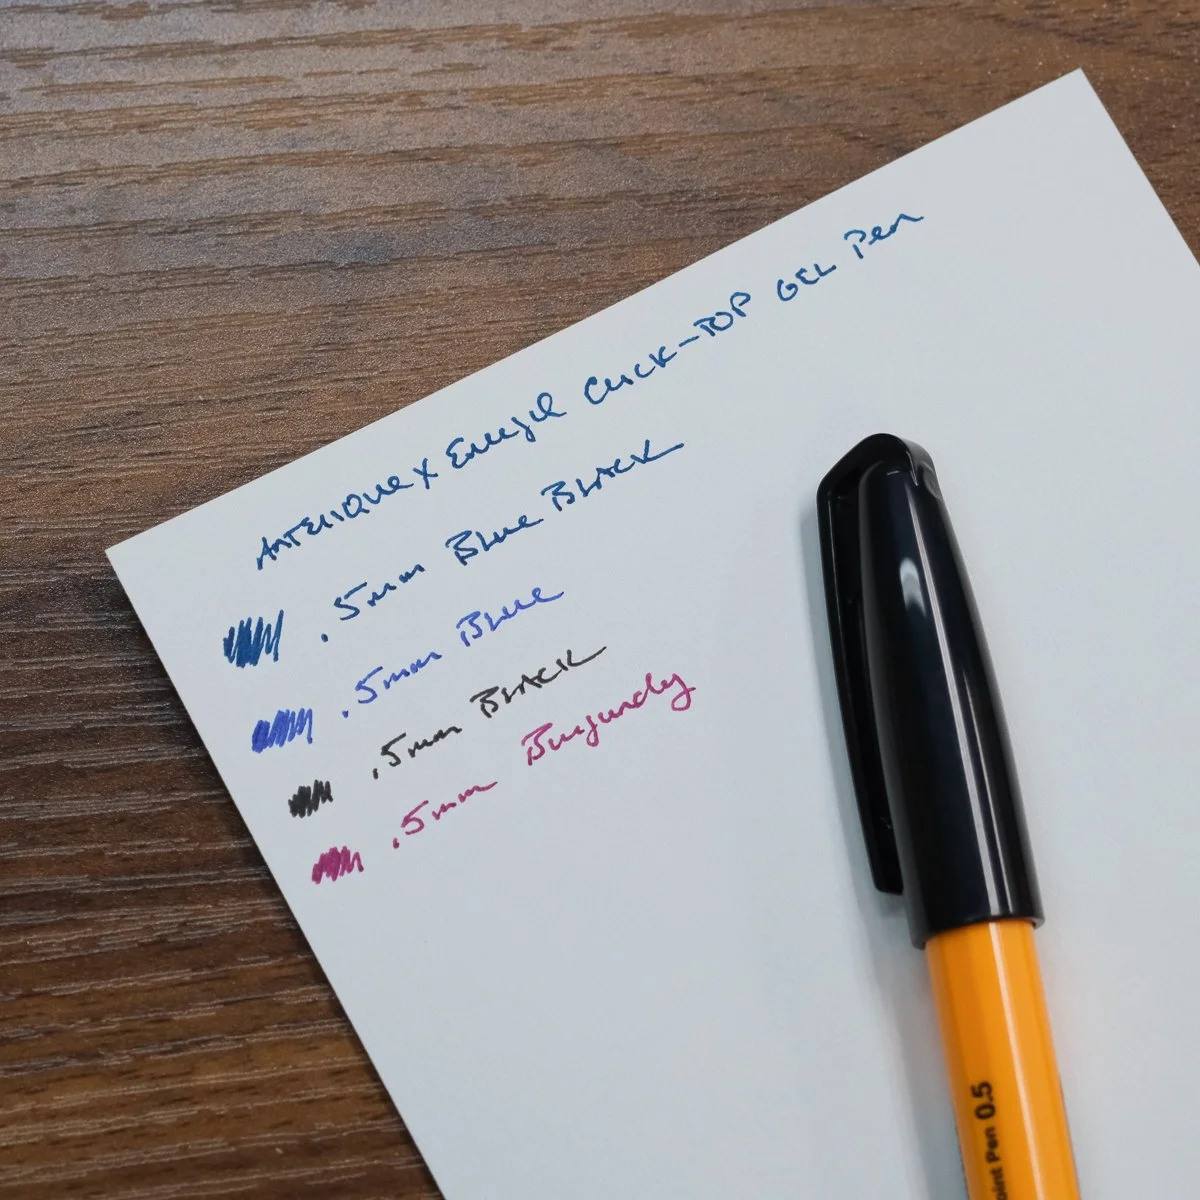 Antetique x Energel Click-Top GEL Pen
.5mm Blue Black
.5mm Blue
.5mm Black
.5mm Burgundy
Pen 0.5